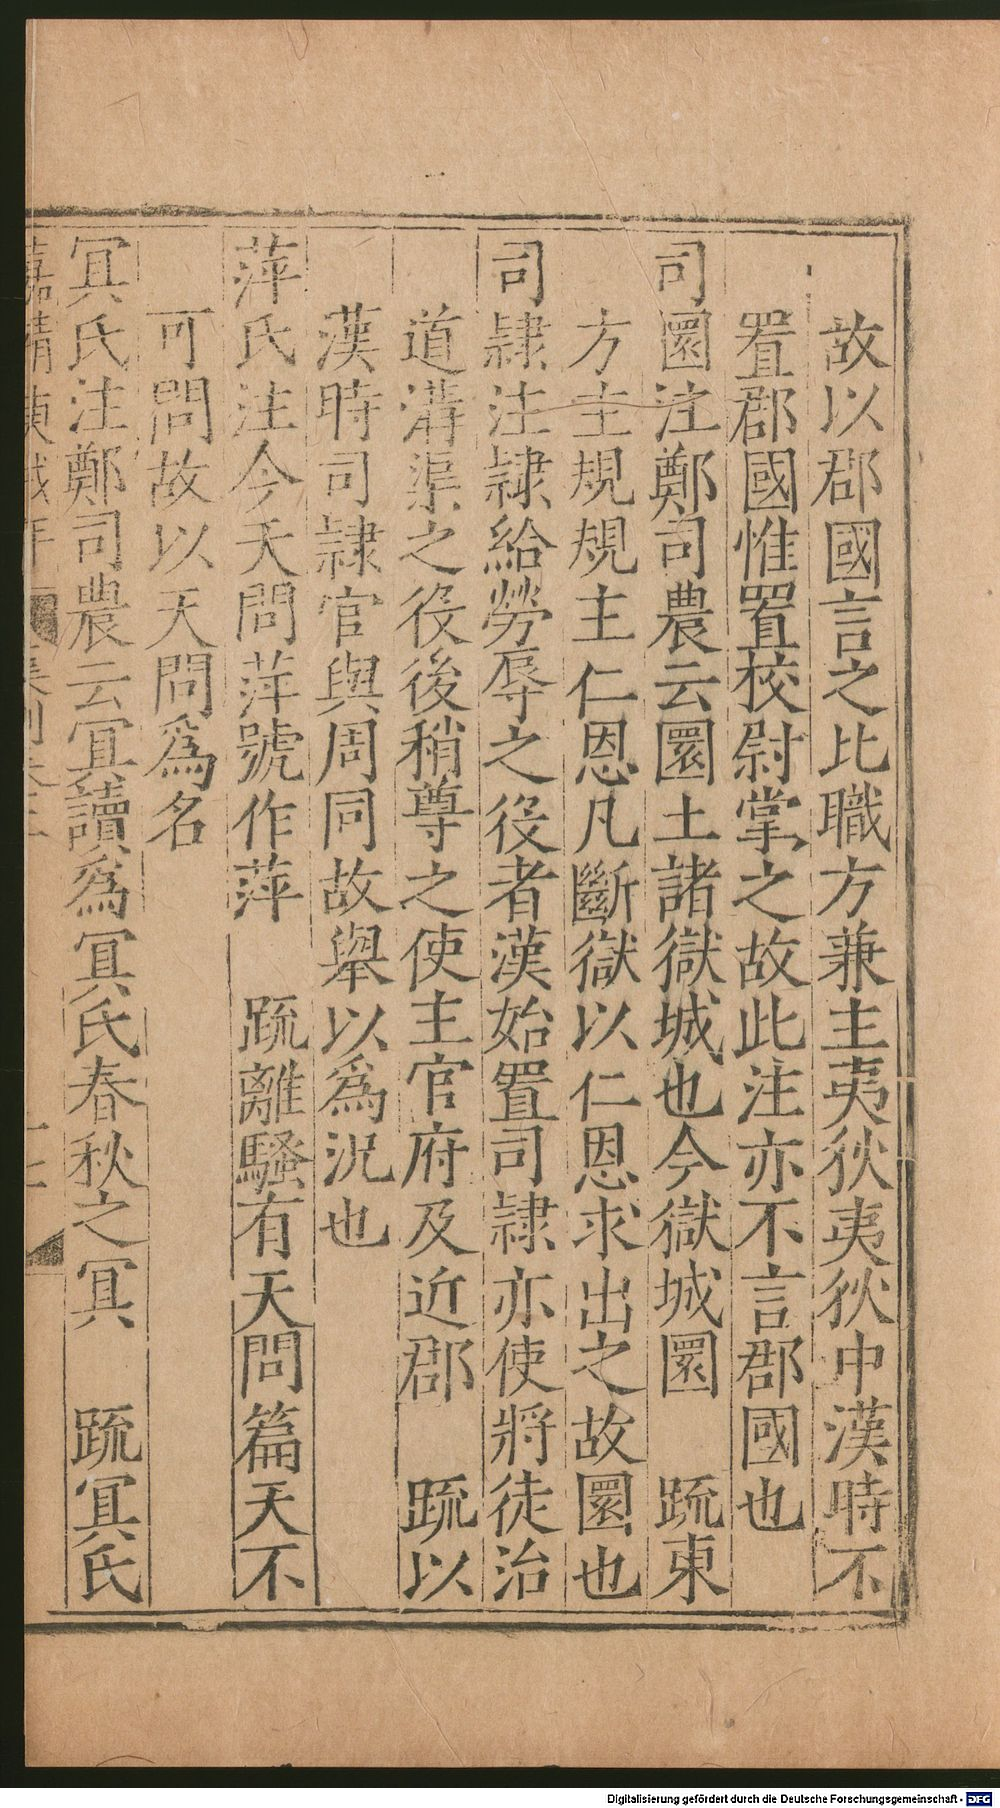 故以郡國言之比職方兼主夷狄夷狄中漢時不
置郡國惟置校尉掌之故此注亦不言郡國也
司圜注鄭司農云圜土諸獄城也今獄城圜　䟽東
方主規規主仁恩凡斷獄以仁恩求出之故圜也
司隷注隷給勞辱之役者漢始置司隷亦使將徒治
道溝渠之役後稍尊之使主官府及近郡　䟽以
漢時司隷官與周同故舉以爲況也
萍氏注今天問萍號作萍　䟽離騷有天問篇天不
可問故以天問爲名
冥氏注鄭司農云冥讀爲冥氏春秋之冥　䟽冥氏
Digitalisierung gefördert durch die Deutsche Forschungsgemeinschaft - DFG